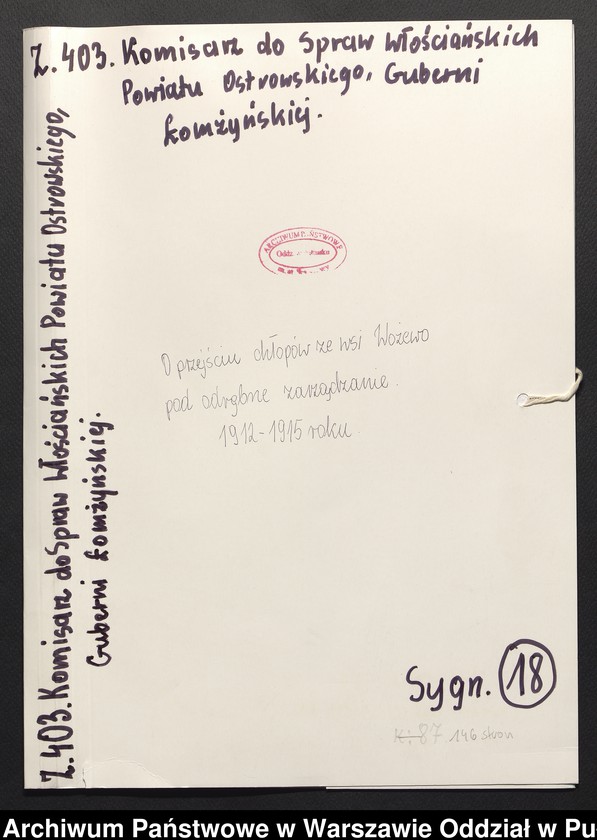 Z. 403. Komisarz do Spraw Włościańskich
Powiatu Ostrowskiego, Guberni
Łomżyńskiej.
Z. 403. Komisarz do Spraw Włościańskich Powiatu Ostrowskiego,
Guberni Łomżyńskiej.
ARCHIWUM PAŃSTWOWE
Oddz.
O przejściu chłopów ze wsi Wożewo
pod odrębne zarządzanie.
1912-1915 roku.
Sygn. 18
K: 87 146 stron
Archiwum Państwowe w Warszawie Oddział w Pu